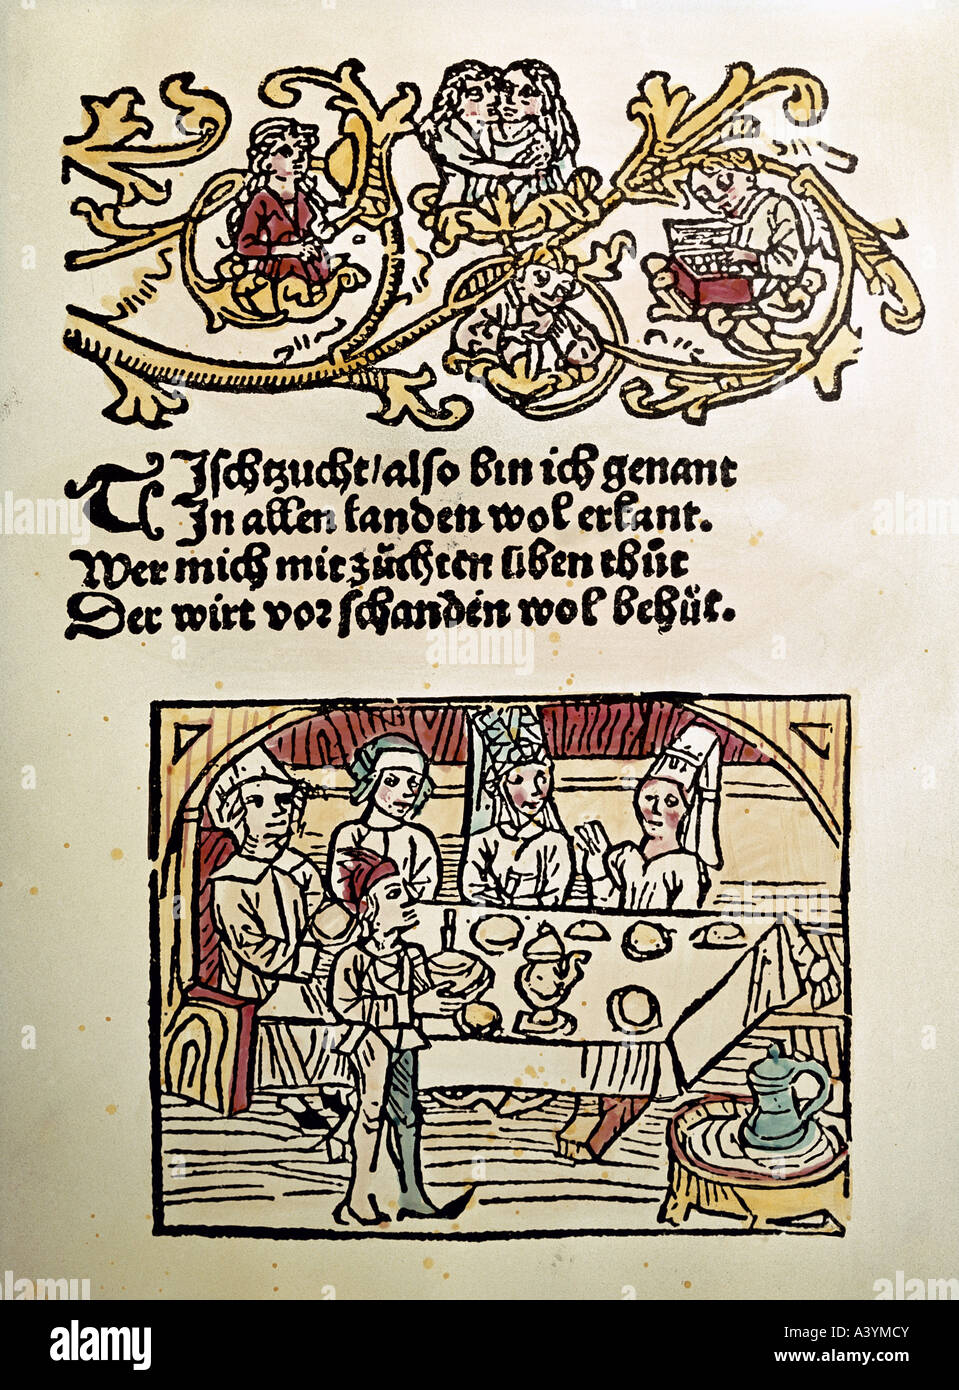 TJschtzucht/also bin ich genant
Jn allen landen wol erkant.
Wer mich mit zůchten liben thůt
Der wirt vor schanden wol behůt.
alamy
Image ID: A3YMCY
www.alamy.com